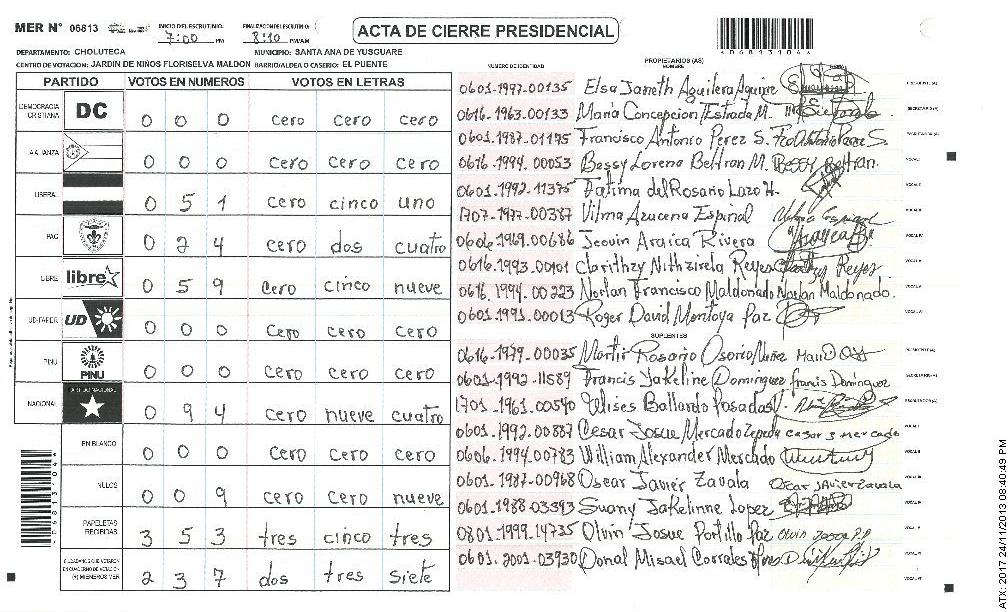 MER N° 06813
INICIO DEL ESCRUTINIO: 7:00 PM
FINALIZACION ESCRUTINIO: 8:10 PM/AM
ACTA DE CIERRE PRESIDENCIAL
*068131041*
DEPARTAMENTO: CHOLUTECA MUNICIPIO: SANTA ANA DE YUSGUARE
CENTRO DE VOTACION: JARDIN DE NIÑOS FLORISELVA MALDON BARRIO/ALDEA O CASERIO: EL PUENTE
PARTIDO VOTOS EN NUMEROS VOTOS EN LETRAS
DEMOCRACIA CRISTIANA DC 0 0 0 cero cero cero
ALIANZA 0 0 0 cero cero cero
LIBERAL 0 51 cero cinco uno
PAC 0 24 cero dos cuatro
LIBRE libre 0 59 cero cinco nueve
UD-FAPER UD 0 0 0 cero cero cero
PINU PINU 0 0 0 cero cero cero
NACIONAL 0 94 cero nueve cuatro
EN BLANCO 0 0 0 cero cero cero
NULOS 0 0 9 cero cero nueve
PAPELETAS RECIBIDAS 3 5 3 tres cinco tres
CIUDADANOS QUE VOTARON EN CUADERNO DE VOTACION (+) MIEMBROS MER 2 3 7 dos tres siete
NUMERO DE IDENTIDAD
PROPIETARIOS (AS)
NOMBRE
0601-1997-00135 Elsa Janneth Aguilera Aguirre
0616-1963-00133 María Concepcion Estrada M.
0601-1987-01175 Francisco Antonio Perez S.
0616-1994-00053 Bessy Lorena Beltran M. Bessy Beltran.
0601-1992-11375 Fatima del Rosario Lazo H.
1707-1977-00387 Vilma Azucena Espinal
0606-1969-00686 Jeovin Araica Rivera
0616-1993-00101 Clarithzy Nithzirela Reyes
0616-1994-00223 Noslan Francisco Maldonado Noslan Maldonado.
0601-1991-00013 Roger David Montoya Paz
SUPLENTES
0616-1979-00035 Martir Rosario Osorio Nuñez
0601-1992-11589 Francis Jakeline Domínguez Francis Domínguez
1701-1961-00540 Ulises Ballardo Posadas
0601-1992-00887 Cesar Josue Mercado Zepeda cesar J mercado
0606-1994-00783 William Alexander Mercado
0601-1987-00968 Oscar Javier Zavala Oscar Javier Zavala
0601-1988-03393 Suany Jakelinne Lopez
0801-1999-14735 Olvin Josue Portillo Paz
0601-2001-03930 Donal Misael Corrales Flores
ATX: 2017 24/11/2013 08:40:49 PM